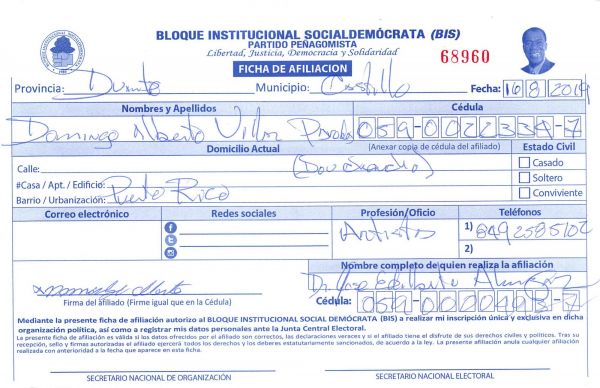 BLOQUE INSTITUCIONAL SOCIALDEMÓCRATA (BIS)
PARTIDO PEÑAGOMISTA
Libertad, Justicia, Democracia y Solidaridad
68960
FICHA DE AFILIACION
Provincia: Duarte Municipio: Castillo Fecha: 16/8/2019
Nombres y Apellidos Cédula
Domingo Alberto Villar 059-0022334-7
Domicilio Actual (Anexar copia de cédula del afiliado) Estado Civil
Calle: Casado
#Casa / Apt. / Edificio: Soltero
Barrio / Urbanización: Puerto Rico Conviviente
Correo electrónico Redes sociales Profesión/Oficio Teléfonos
Artista 1) 8492585102
2)
Nombre completo de quien realiza la afiliación
Dr. Jose
Firma del afiliado (Firme igual que en la Cédula) Cédula: 059-0020493-7
Mediante la presente ficha de afiliación autorizo al BLOQUE INSTITUCIONAL SOCIAL DEMÓCRATA (BIS) a realizar mi inscripción única y exclusiva en dicha
organización política, así como a registrar mis datos personales ante la Junta Central Electoral.
La presente ficha de afiliación es válida si las datos ofrecidos por el afiliado son correctos, las declaraciones veraces y si el afiliado tiene el disfrute de sus derechos civiles y políticos. Tras su
recepción, sello y firmas autorizadas el afiliado ejercerá todos los derechos y los deberes estatutariamente sancionados, de acuerdo a la ley. La presente afiliación anula cualquier afiliación
realizada con anterioridad a la fecha que aparece en esta ficha.
SECRETARIO NACIONAL DE ORGANIZACIÓN SECRETARIO NACIONAL ELECTORAL